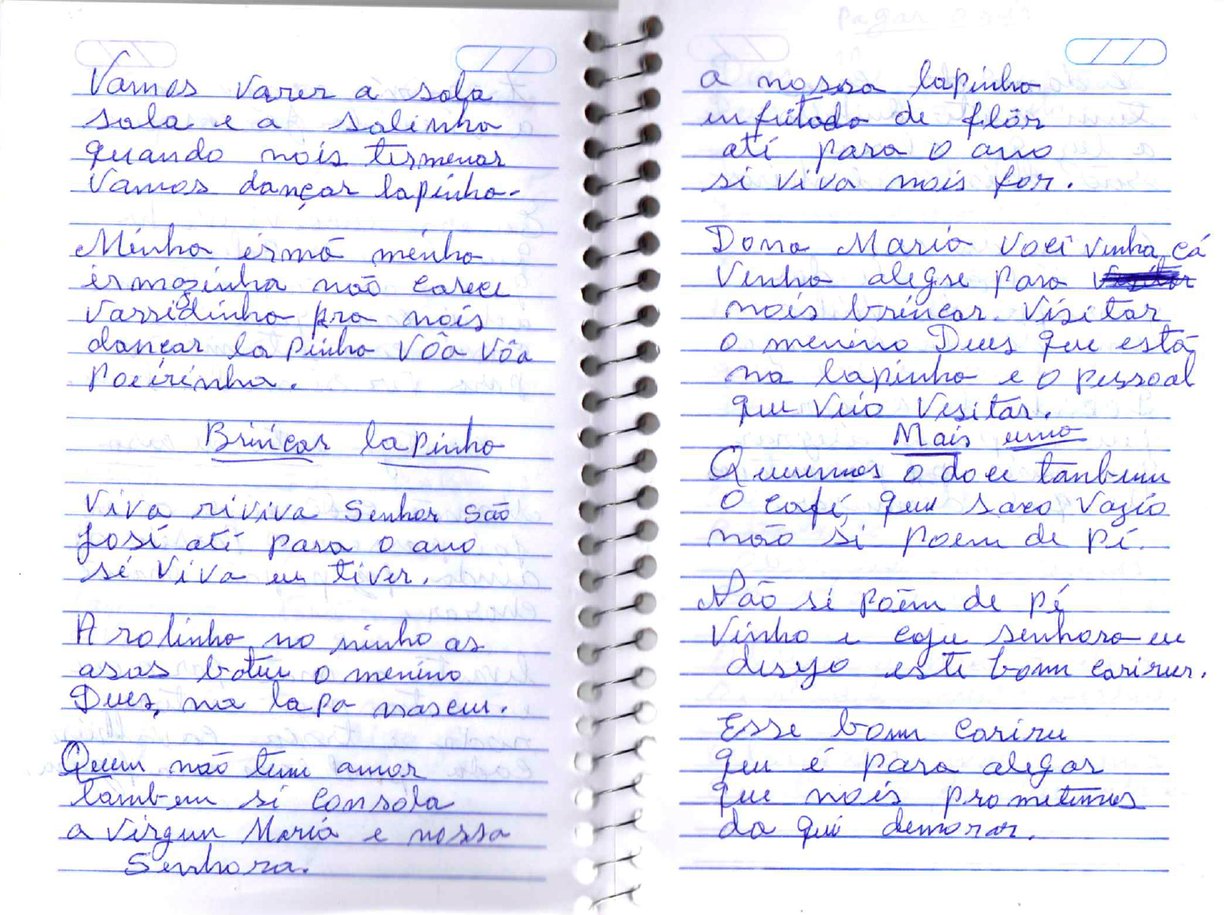 Vamos varer a sala
sala e a salinha
quando nóis termenar
Vamos dançar lapinha.
Minha irmã minha
irmazinha não carece
varridinha pra nóis
dançar la pinha Vôa Vôa
Poeirinha.
Brincar lapinha
Viva riviva Senhor São
José até para o ano
si Viva eu tiver.
A rolinha no ninho as
asas bateu o menino
Dues, na lapa nasceu.
Quem não tem amor
tambem si consola
a Virgem Maria e nossa
Senhora.
a nossa lapinha
infeitada de flôr
até para o ano
si viva nóis for.
Dona Maria Você vinha cá
Venha alegre para
nóis brincar. Visitar
o menino Dues que está
na lapinha e o pessoal
que Veio Visitar.
Mais uma
Queremos o doce tanbem
O café que saco Vazio
não si poem de pé.
Não si poêm de pé
Vinho e caju senhora eu
desejo este bom cariru.
Esse bom cariru
que é para alegar
que nóis prometemos
da qui demorar.